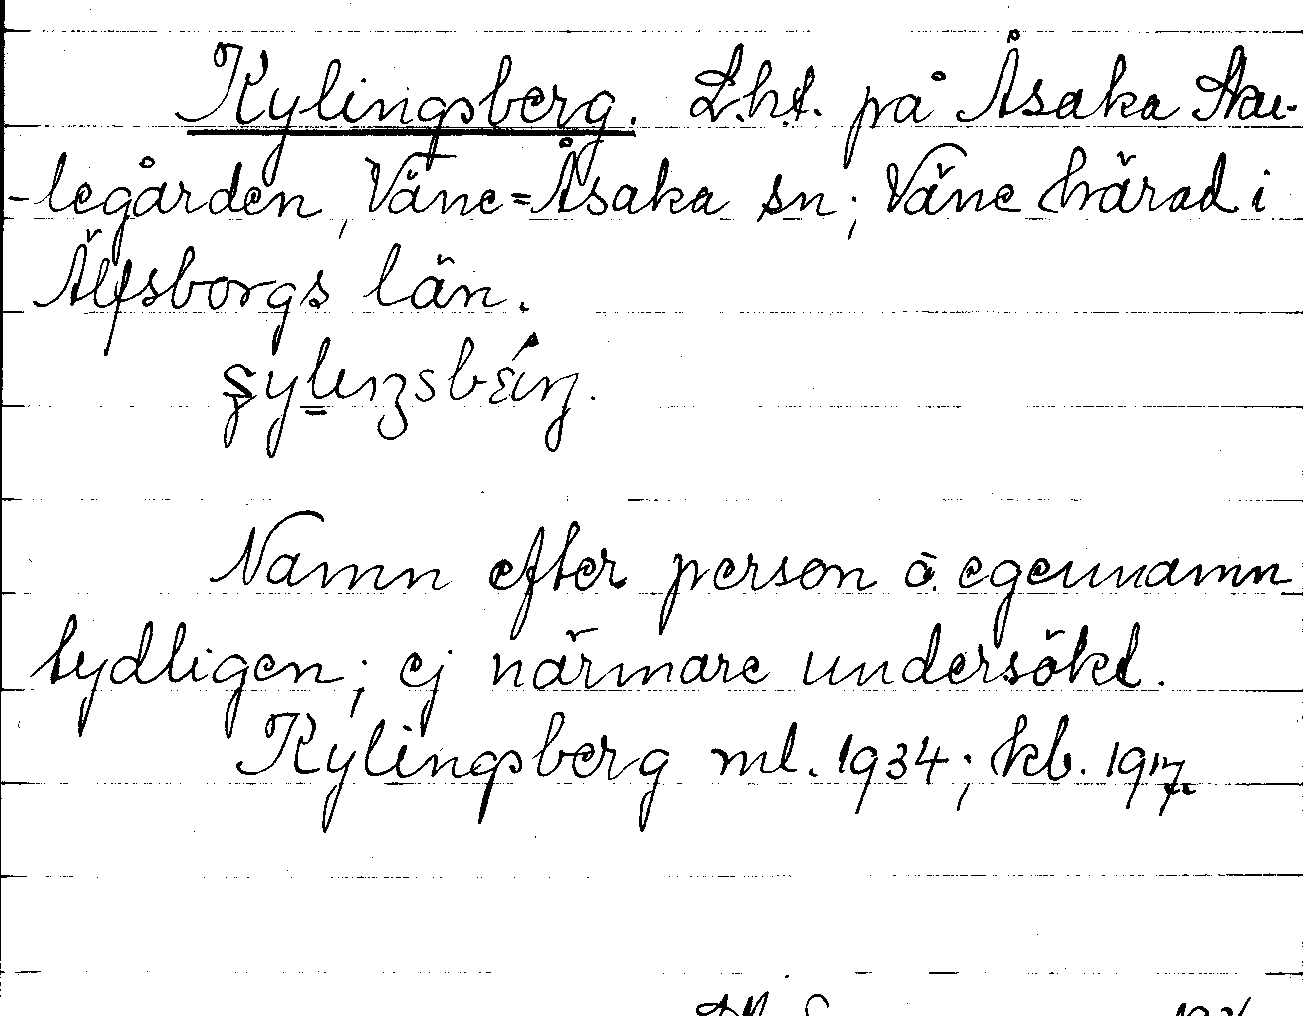 Kylingsberg. Lht. på Åsaka Sta-
-legården, Väne-Åsaka sn; Väne härad i
Älfsborgs län.
Namn efter person å egennamn
tydligen; ej närmare undersökt.
Kylingsberg ml. 1934; kb. 1917.